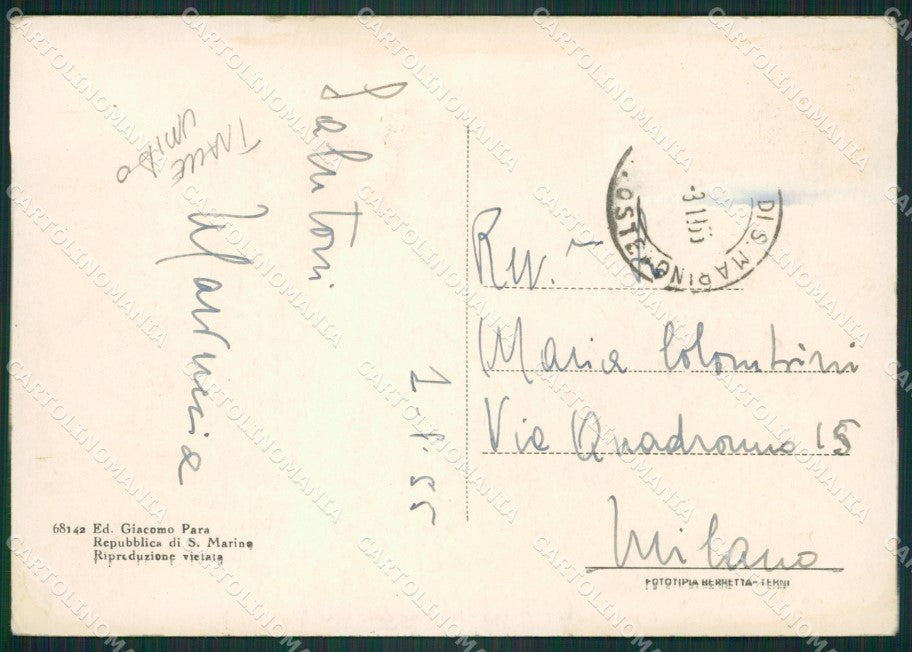 Salutoni
Marucia
1.1.55
Maria Colombini
Via Quadronno 15
Milano
POSTE
DI S. MARINO
68142 Ed. Giacomo Para
Repubblica di S. Marino
Riproduzione vietata
FOTOTIPIA BERRETTA - TERNI
CARTOLINOMANIA